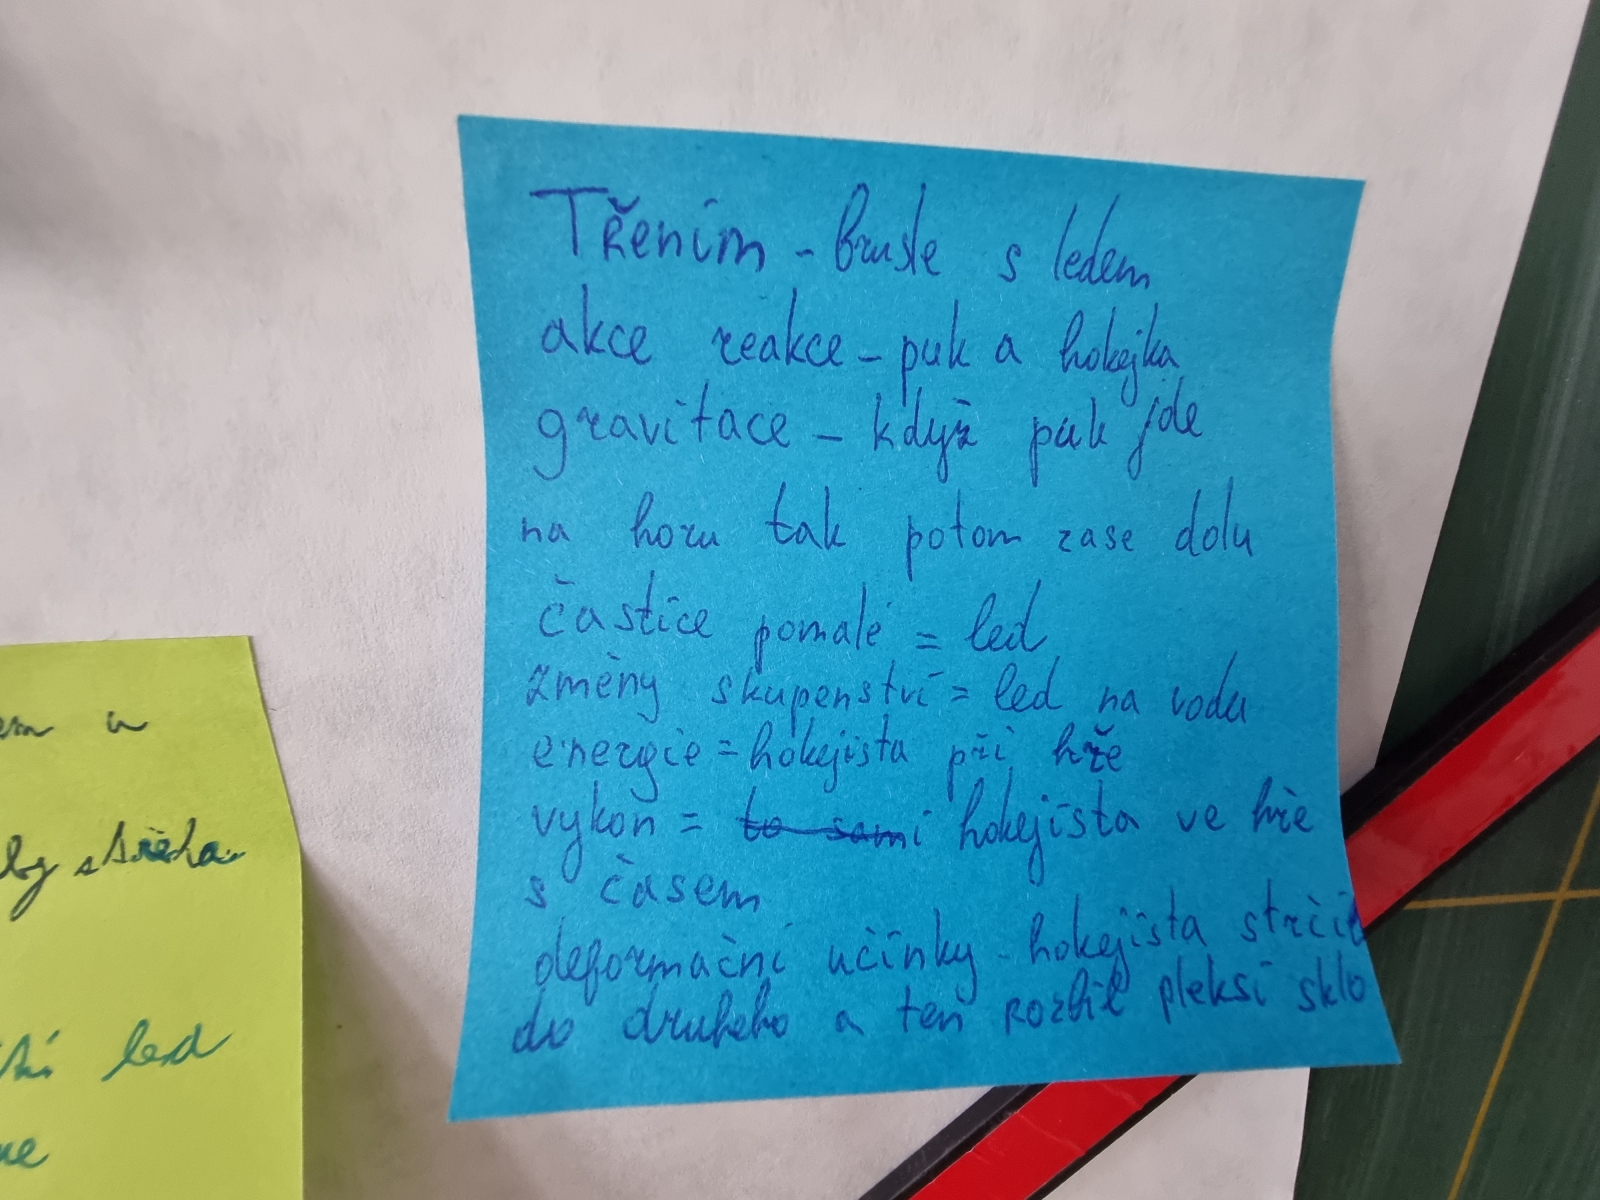 Třením - brusle s ledem
akce reakce - puk a hokejka
gravitace - když puk jde
na horu tak potom zase dolu
částice pomalé = led
změny skupenství = led na vodu
energie = hokejista při hře
vykon = to sami hokejista ve hře
s časem
deformační učinky - hokejista strčil
do druheho a ten rozbil pleksi sklo
em u
by střeha
led